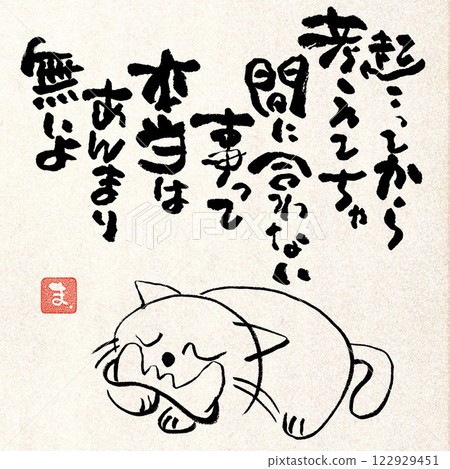 起こってから
考えてちゃ
間に合わない
事って
本当は
あんまり
無いよ
ま
PIXTA
122929451